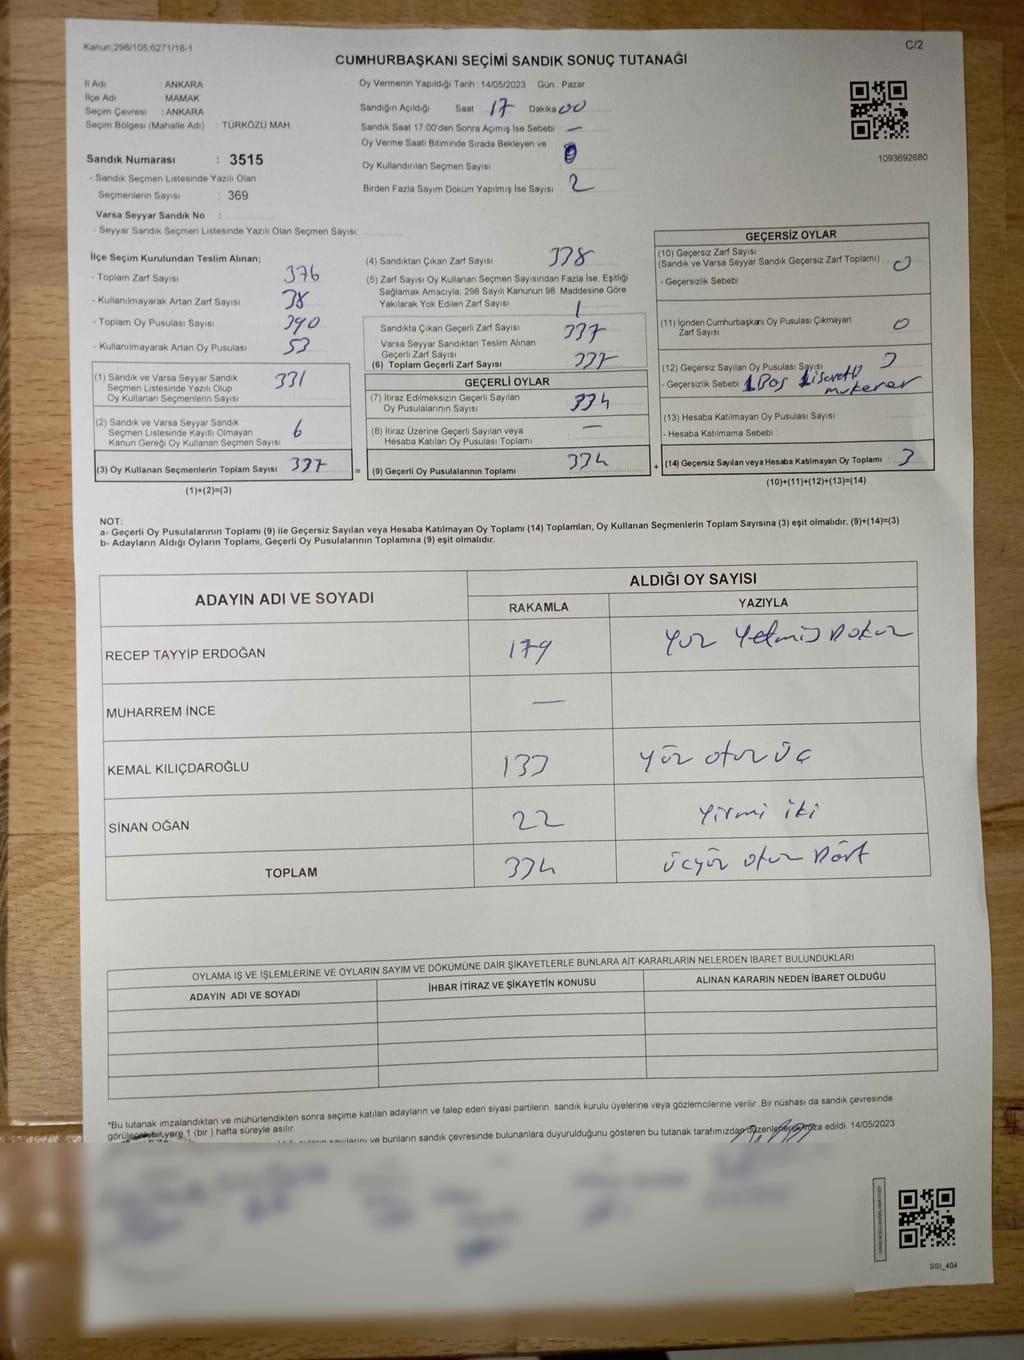 Kanun:298/105,6271/18-1
C/2
CUMHURBAŞKANI SEÇİMİ SANDIK SONUÇ TUTANAĞI
İl Adı : ANKARA
İlçe Adı : MAMAK
Seçim Çevresi : ANKARA
Seçim Bölgesi (Mahalle Adı) : TÜRKÖZÜ MAH
Sandık Numarası : 3515
- Sandık Seçmen Listesinde Yazılı Olan
Seçmenlerin Sayısı : 369
Varsa Seyyar Sandık No :
- Seyyar Sandık Seçmen Listesinde Yazılı Olan Seçmen Sayısı:
Oy Vermenin Yapıldığı Tarih : 14/05/2023 Gün : Pazar
Sandığın Açıldığı Saat 17 Dakika 00
Sandık Saat 17:00'den Sonra Açımış İse Sebebi : —
Oy Verme Saati Bitiminde Sırada Bekleyen ve
Oy Kullandırılan Seçmen Sayısı 0
Birden Fazla Sayım Döküm Yapılmış İse Sayısı : 2
1093692680
İlçe Seçim Kurulundan Teslim Alınan;
- Toplam Zarf Sayısı 376
- Kullanılmayarak Artan Zarf Sayısı 38
- Toplam Oy Pusulası Sayısı 390
- Kullanılmayarak Artan Oy Pusulası 53
(1) Sandık ve Varsa Seyyar Sandık
Seçmen Listesinde Yazılı Olup
Oy Kullanan Seçmenlerin Sayısı 331
(2) Sandık ve Varsa Seyyar Sandık
Seçmen Listesinde Kayıtlı Olmayan
Kanun Gereği Oy Kullanan Seçmen Sayısı 6
(3) Oy Kullanan Seçmenlerin Toplam Sayısı 337
(1)+(2)=(3)
(4) Sandıktan Çıkan Zarf Sayısı 338
(5) Zarf Sayısı Oy Kullanan Seçmen Sayısından Fazla İse, Eşitliği
Sağlamak Amacıyla; 298 Sayılı Kanunun 98. Maddesine Göre
Yakılarak Yok Edilen Zarf Sayısı 1
Sandıkta Çıkan Geçerli Zarf Sayısı 337
Varsa Seyyar Sandıktan Teslim Alınan
Geçerli Zarf Sayısı
(6) Toplam Geçerli Zarf Sayısı 337
GEÇERLİ OYLAR
(7) İtiraz Edilmeksizin Geçerli Sayılan
Oy Pusulalarının Sayısı 334
(8) İtiraz Üzerine Geçerli Sayılan veya
Hesaba Katılan Oy Pusulası Toplamı —
= (9) Geçerli Oy Pusulalarının Toplamı 334
GEÇERSİZ OYLAR
(10) Geçersiz Zarf Sayısı
(Sandık ve Varsa Seyyar Sandık Geçersiz Zarf Toplamı) : 0
- Geçersizlik Sebebi :
(11) İçinden Cumhurbaşkanı Oy Pusulası Çıkmayan
Zarf Sayısı 0
(12) Geçersiz Sayılan Oy Pusulası Sayısı 3
- Geçersizlik Sebebi : 1 Boş 1 işaretli
mükerrer
(13) Hesaba Katılmayan Oy Pusulası Sayısı
- Hesaba Katılmama Sebebi :
+ (14) Geçersiz Sayılan veya Hesaba Katılmayan Oy Toplamı : 3
(10)+(11)+(12)+(13)=(14)
NOT:
a- Geçerli Oy Pusulalarının Toplamı (9) ile Geçersiz Sayılan veya Hesaba Katılmayan Oy Toplamı (14) Toplamları, Oy Kullanan Seçmenlerin Toplam Sayısına (3) eşit olmalıdır. (9)+(14)=(3)
b- Adayların Aldığı Oyların Toplamı, Geçerli Oy Pusulalarının Toplamına (9) eşit olmalıdır.
ADAYIN ADI VE SOYADI
ALDIĞI OY SAYISI
RAKAMLA YAZIYLA
RECEP TAYYİP ERDOĞAN 179 Yüz Yetmiş Dokuz
MUHARREM İNCE —
KEMAL KILIÇDAROĞLU 133 Yüz otuz üç
SİNAN OĞAN 22 Yirmi iki
TOPLAM 334 üçyüz otuz Dört
OYLAMA İŞ VE İŞLEMLERİNE VE OYLARIN SAYIM VE DÖKÜMÜNE DAİR ŞİKAYETLERLE BUNLARA AİT KARARLARIN NELERDEN İBARET BULUNDUKLARI
ADAYIN ADI VE SOYADI İHBAR İTİRAZ VE ŞİKAYETİN KONUSU ALINAN KARARIN NEDEN İBARET OLDUĞU
*Bu tutanak imzalandıktan ve mühürlendikten sonra seçime katılan adayların ve talep eden siyasi partilerin sandık kurulu üyelerine veya gözlemcilerine verilir. Bir nüshası da sandık çevresinde
görülecek bir yere 1 (bir ) hafta süreyle asılır.
ve bunların sandık çevresinde bulunanlara duyurulduğunu gösteren bu tutanak tarafımızdan düzenlenerek imza edildi. 14/05/2023
SSI_404